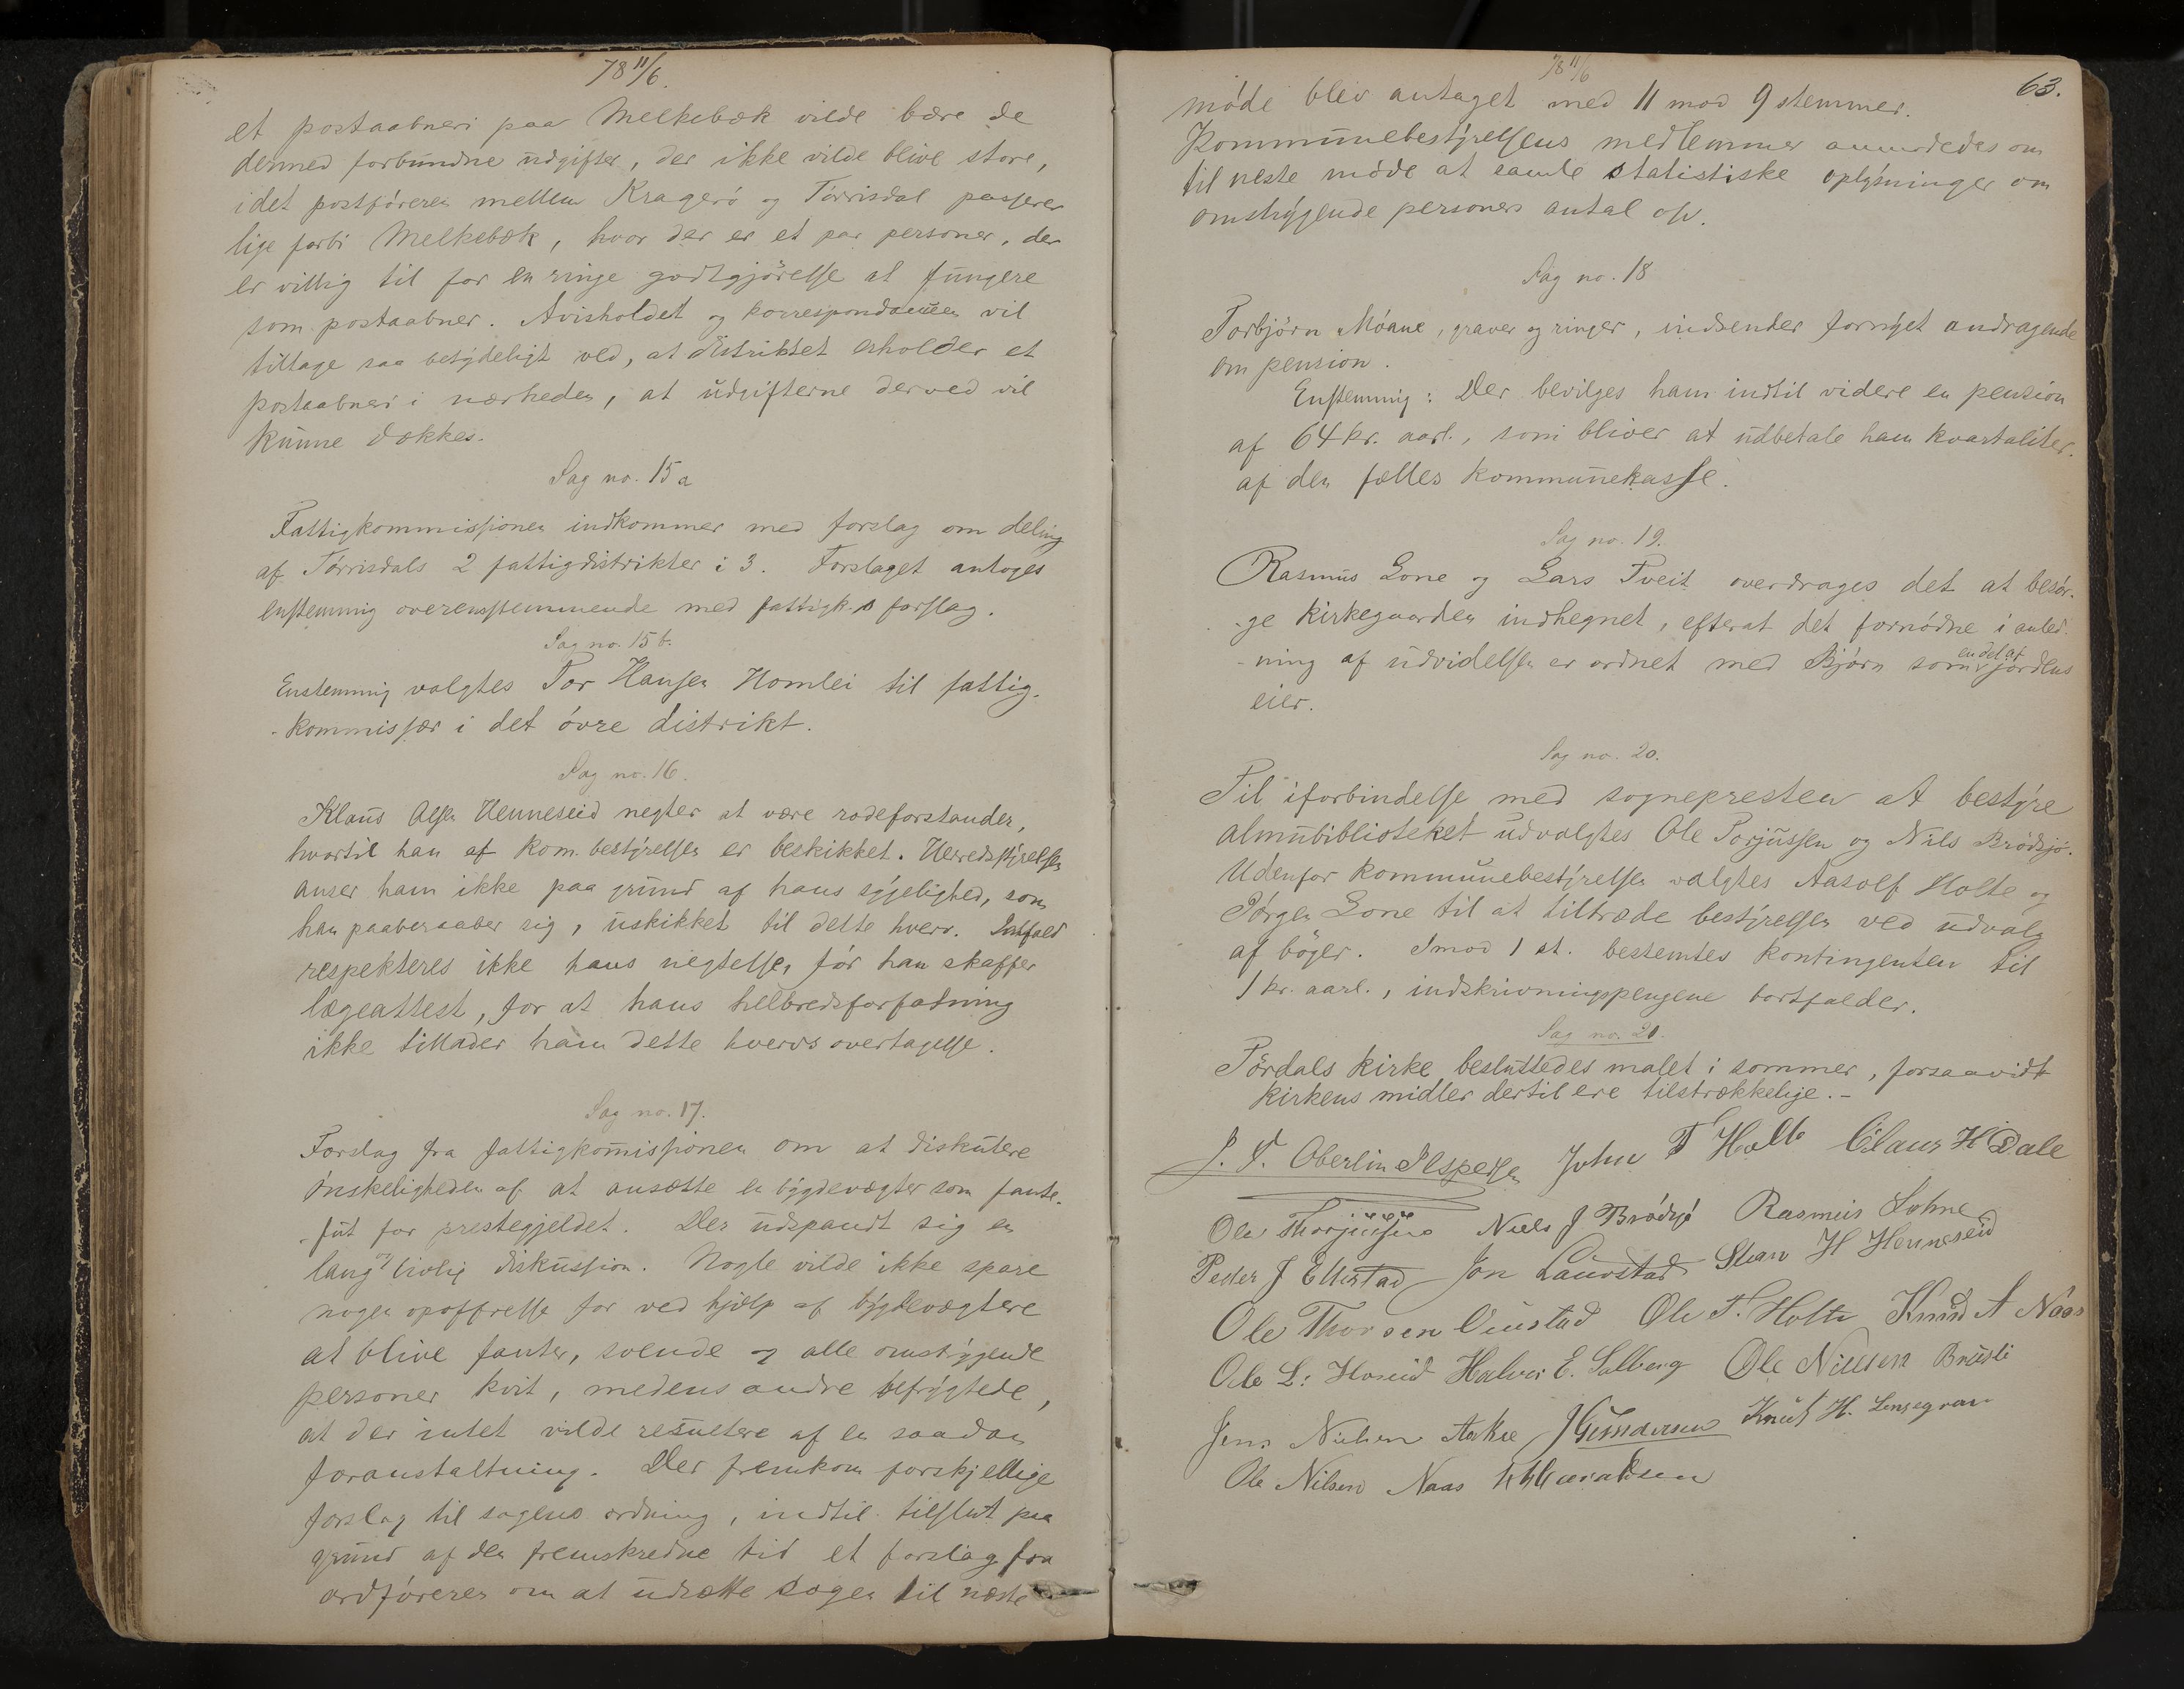 78 11/6.
et postaabneri paa Melkebæk vilde bære de
dermed forbundne udgifter, der ikke vilde blive store,
idet postföreren mellem Kragerö og Törrisdal passerer
lige forbi Melkebæk, hvor der er et par personer, der
er villig til for en ringe godtgjörelse at fungere
som postaabner. Avisholdet og korrespondancen vil
tiltage saa betydeligt ved, at distriktet erholder et
postaabneri i nærheden, at udgifterne derved vil
kunne dækkes.
Sag no. 15 a
Fattigkommissionen indkommer med forslag om deling
af Törrisdals 2 fattigdistrikter i 3. Forslaget antoges
enstemmig overensstemmende med fattigk.s forslag.
Sag no. 15 b.
Enstemmig valgtes Tor Hansen Homlei til fattig-
-kommissær i det övre distrikt.
Sag no. 16.
Klaus Olsen Henneseid negter at være rodeforstander,
hvortil han af kom. bestyrelsen er beskikket. Herredsstyrelsen
anser ham ikke paa grund af hans sygelighed, som
han paaberaaber sig, uskikket til dette hverv. Ialfald
respekteres ikke hans negtelse, för han skaffer
lægeattest, for at hans helbredsforfatning
ikke tillader ham dette hvervs overtagelse.
Sag no. 17.
Forslag fra fattigkommissionen om at diskutere
önskeligheden af at ansætte en bygdevægter som fante-
-fut for prestegjeldet. Der udspandt sig en
lang og livlig diskussion. Nogle vilde ikke spare
nogen opoffrelse for ved hjælp af bygdevægtere
at blive fanter, svende og alle omstrygende
personer kvit, medens andre befrygtede,
at der intet vilde resultere af en saadan
foranstaltning. Der fremkom forskjellige
forslag til sagens ordning, indtil tilslut paa
grund af den fremskredne tid et forslag fra
ordföreren om at udsætte sagen til næste
78 11/6
63.
möde blev antaget med 11 mod 9 stemmer.
Kommunebestyrelsens medlemmer anmodedes om
til neste möde at samle statistiske oplysninger om
omstrygende personers antal osv.
Sag no. 18
Torbjörn Móane, graver og ringer, indsender fornyet andragende
om pension.
Enstemmig: Der bevilges ham indtil videre en pension
af 64 kr. aarl., som bliver at udbetale ham kvartaliter.
af den fælles kommunekasse.
Sag no. 19.
Rasmus Lone og Lars Tveit overdrages det at besör-
-ge kirkegaarden indhegnet, efterat det fornödne i anled-
-ning af udvidelsen er ordnet med Björn som en del af jordens
eier.
Sag no. 20.
Til iforbindelse med sognepresten at bestyre
almubiblioteket udvalgtes Ole Torjussen og Nils Brödsjö.
Udenfor kommunebestyrelsen valgtes Aasolf Holte og
Jörgen Lone til at tiltræde bestyrelsen ved udvalg
af böger. Imod 1 st. bestemtes kontingenten til
1 kr. aarl., indskrivningspengene bortfalder.
Sag no. 21.
Tördals kirke besluttedes malet i sommer, forsaavidt
kirkens midler dertil ere tilstrækkelige.-
J. F. Oberlin Jespersen John T Holte Claus H Dale
Ole Thorjussen Niels J Brödsjö Rasmus Lohne
Peder J Ellestad Jon Laurstad H Henneseid
Ole Thorsen Ole T. Holte Knud A Naas
Ole L: Hoseid Halvor E. Solberg Ole Nielsen Brusli
Jens Nielsen Aakre J Gundersen Knut H.
Ole Nilsen Naas